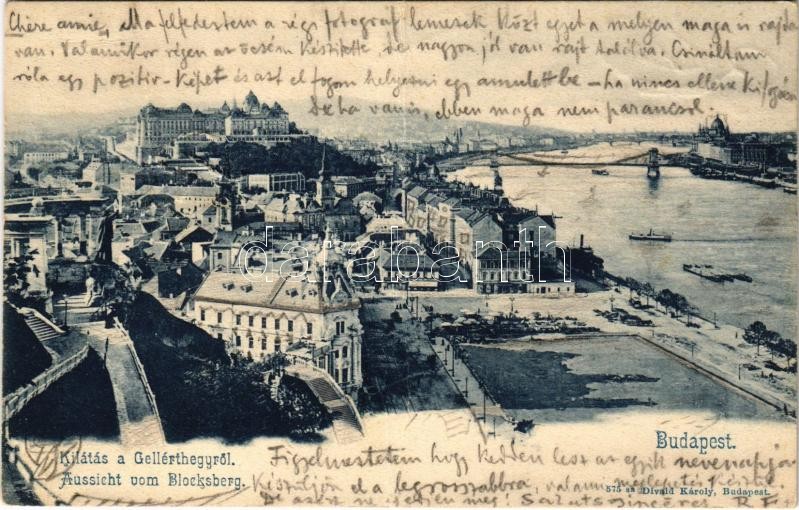 Chère amie, Ma felfedeztem a régi fotograf lemezek közt egyet a melyen maga is rajta
van. Valamikor régen az öcsém készítette, de nagyon jól van rajt találva. Csináltam
róla egy pozitiv-képet és azt el fogom helyezni egy amulettbe – ha nincs ellene kifogása
De ha van is, ebben maga nem parancsol.
databanth
Kilátás a Gellérthegyről.
Aussicht vom Blocksberg.
Budapest.
Figyelmeztetem hogy kedden lesz az egyik nevenapja
Készüljön el a legrosszabbra, valami meglepetés készül.
De azért ne ijedjen meg! Saluts sincères R. F.
575 sz Divald Károly, Budapest.